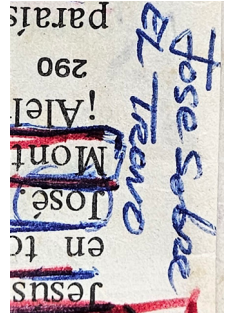 Jesus
en to
José.
Mont
¡Alel
290
paraís
Jose Sobre
EL TRONO